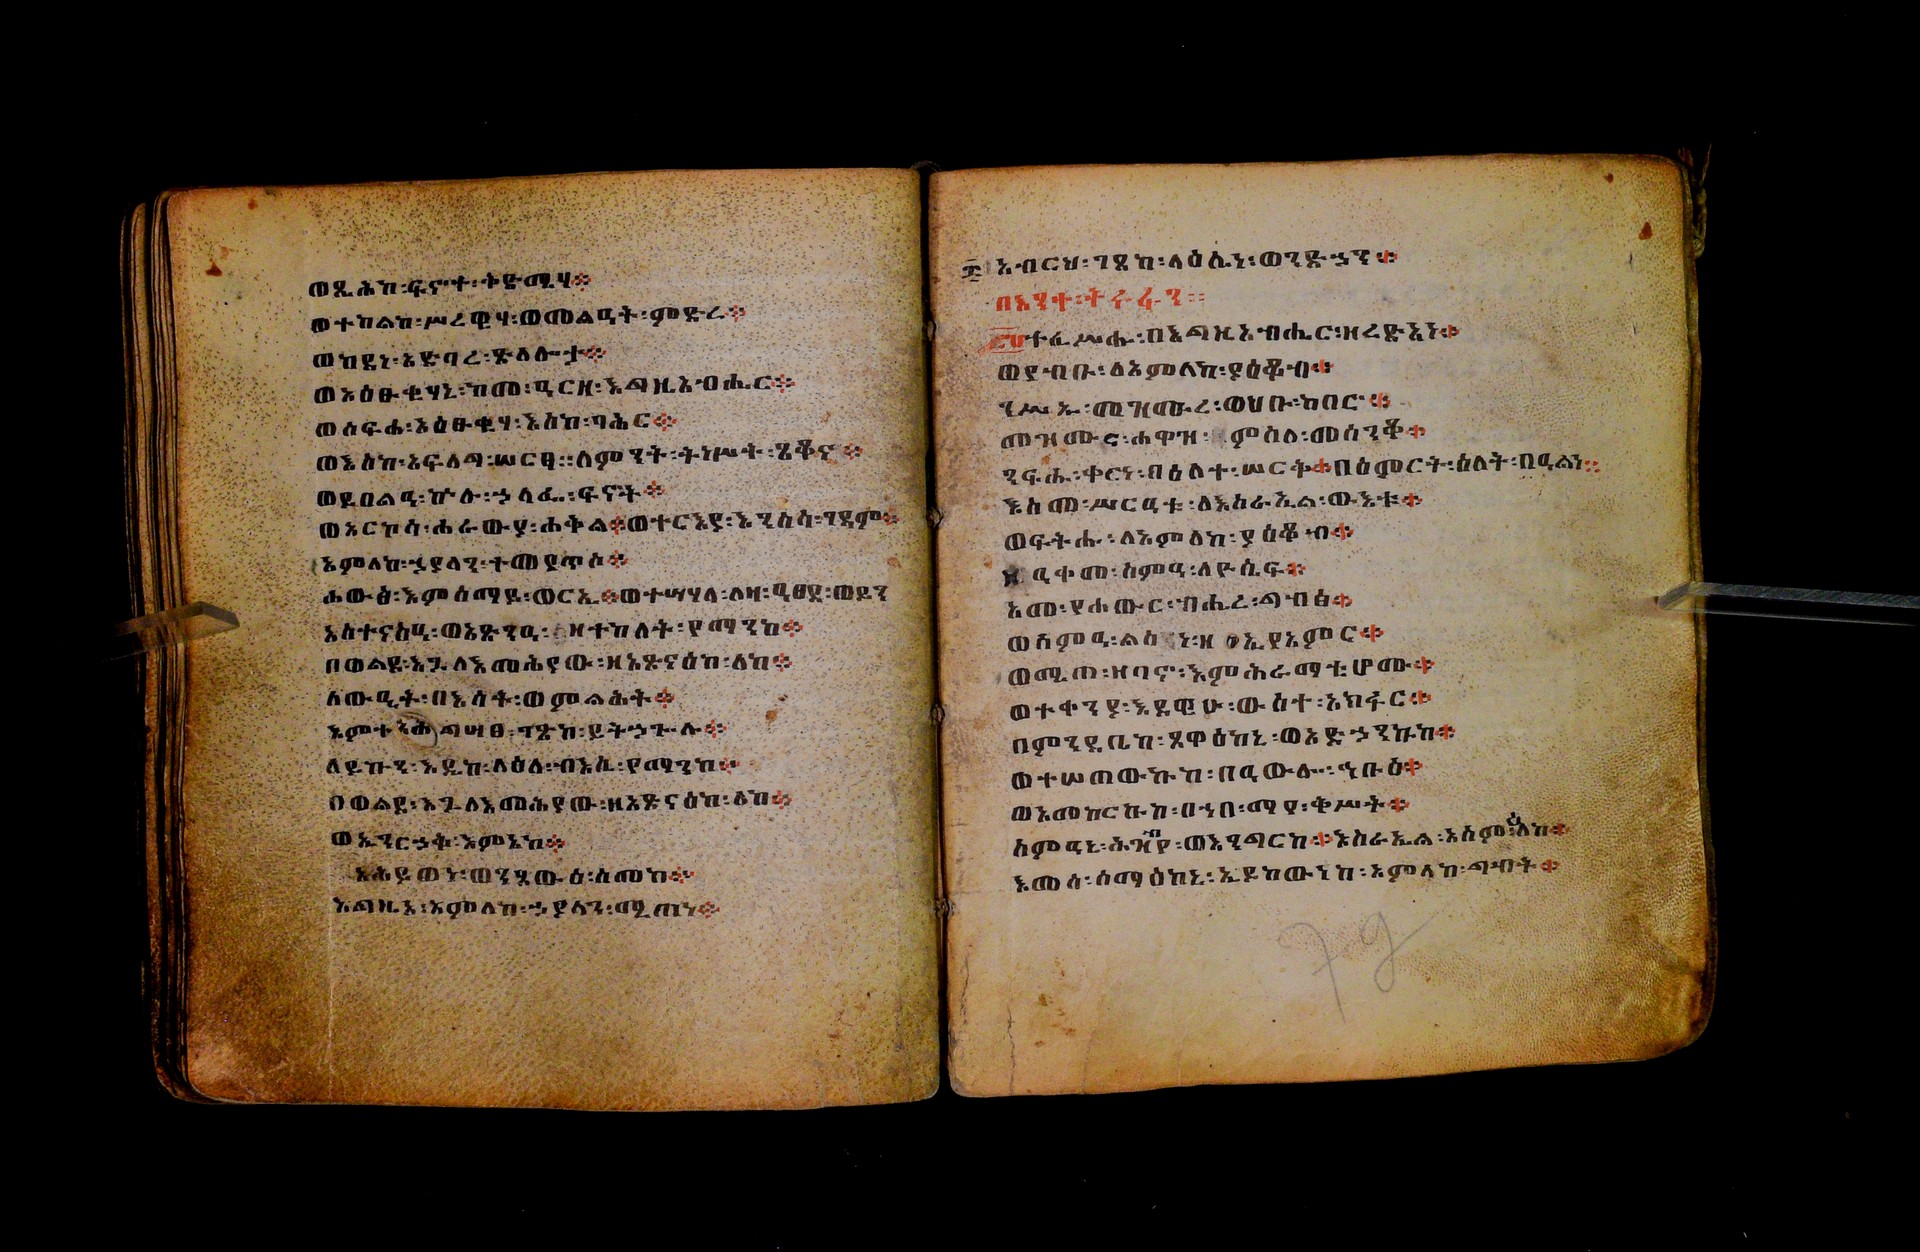 ወጼሕከ፡ፍኖተ፡ቅድሜሃ።
ወተከልከ፡ሥረዊሃ፡ወመልዓት፡ምድረ።
ወከደነ፡አድባረ፡ጽላሎታ።
ወአዕፁቂሃኒ፡ከመ፡ዓርዘ፡እግዚአብሔር።
ወሰፍሐ፡አዕፁቂሃ፡እስከ፡ባሕር።
ወእስከ፡አፍላግ፡ሠርፃ።ለምንት፡ትነሥት፡ጼቆና።
ወይበልዓ፡ኵሉ፡ኃላፌ፡ፍኖት።
ወአርኰሳ፡ሐራውያ፡ሐቅል።ወተርእያ፡እንስሳ፡ገዳም።
አምላከ፡ኃያላን፡ተመየጥሰ።
ሐውፅ፡እምሰማይ፡ወርኢ።ወተሣሃላ፡ለዛ፡ዓፀደ፡ወይን
አስተናስያ፡ወአጽንዓ፡ዘተከለት፡የማንከ።
በወልደ፡እጓለእመሕያው፡ዘአጽናዕከ፡ለከ።
ለውዒት፡በእሳት፡ወምልሕት።
ገጽከ፡ይትኃጐሉ።
ለይኩን፡እዴከ፡ላዕለ፡ብእሴ፡የማንከ።
በወልደ፡እጓለእመሕያው፡ዘአጽናዕከ፡ለከ።
ወኢንርኃቅ፡እምኔከ።
አሕይወነ፡ወንጼውዕ፡ስመከ።
እግዚኦ፡አምላከ፡ኃያላን፡ሚጠነ።
አብርህ፡ገጸከ፡ላዕሌነ፡ወንድኃን።
በእንተ፡
፹ተፈሥሑ፡በእግዚአብሔር፡ዘረድአነ።
ወየብቡ፡ለአምላከ፡ያዕቆብ።
ንሥኡ፡መዝሙረ፡ወሀቡ፡ከበሮ።
መዝሙር፡ሐዋዝ፡ምስለ፡መሰንቆ።
ንፍሑ፡ቀርነ፡በዕለተ፡ሠርቅ።በዕምርት፡ዕለት፡በዓልነ።
እስመ፡ሥርዓቱ፡ለእስራኤል፡ውእቱ።
ወፍትሑ፡ለአምላከ፡ያዕቆብ።
ዓቀመ፡ስምዓ፡ለዮሴፍ።
አመ፡የሐውር፡ብሔረ፡ግብፅ።
ወሰምዓ፡ልሳነ፡ዘኢያአምር።
ወሜጠ፡ዘባኖ፡እምሕራማቲሆሙ።
ወተቀንያ፡እደዊሁ፡ውስተ፡አክፋር።
በምንዳቤከ፡ጸዋዕከኒ፡ወአድኃንኩከ።
ወተሠጠውኩከ፡በዓውሎ፡ኅቡዕ።
ወአመከርኩከ፡በኀበ፡ማየ፡ቅሥት።
ስምዓኒ፡ሕዝብየ፡ወእንግርከ።እስራኤል፡አስምዕ፡ለከ።
እመሰ፡ሰማዕከኒ፡ኢይከውነከ፡አምላከ፡ግብት።
79